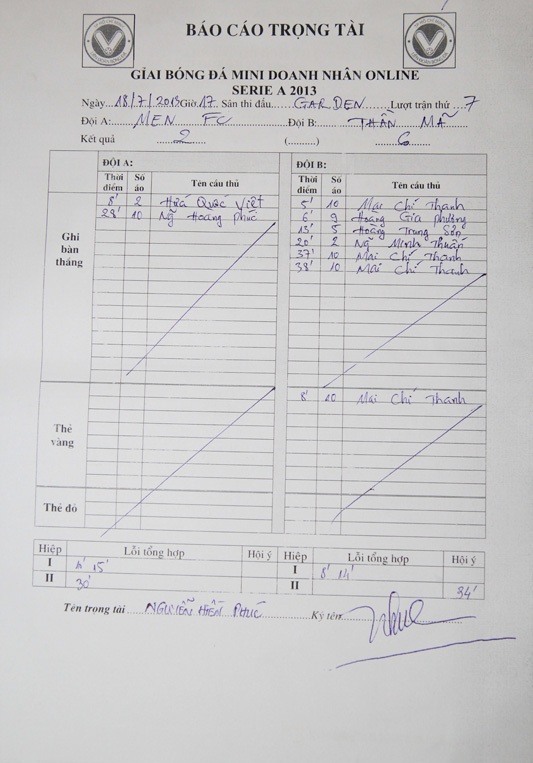 BÁO CÁO TRỌNG TÀI
GIẢI BÓNG ĐÁ MINI DOANH NHÂN ONLINE
SERIE A 2013
Ngày 18/7/2013 Giờ 17 Sân thi đấu GARDEN Lượt trận thứ 7
Đội A: MEN FC Đội B: THẦN MÃ
Kết quả 2 (..........) 6
ĐỘI A: ĐỘI B:
Thời điểm Số áo Tên cầu thủ Thời điểm Số áo Tên cầu thủ
Ghi bàn thắng
8' 2 Hứa Quốc Việt 5' 10 Mai Chí Thanh
28' 10 Ng Hoàng Phúc 6' 9 Hoàng Gia Phương
13' 5 Hoàng Trung Sơn
20' 2 Ng Minh Thuấn
37' 10 Mai Chí Thanh
38' 10 Mai Chí Thanh
Thẻ vàng
8' 10 Mai Chí Thanh
Thẻ đỏ
Hiệp Lỗi tổng hợp Hội ý Hiệp Lỗi tổng hợp Hội ý
I 15' I 8' 14'
II 30' II 34'
Tên trọng tài NGUYỄN HIỀN PHÚC Ký tên